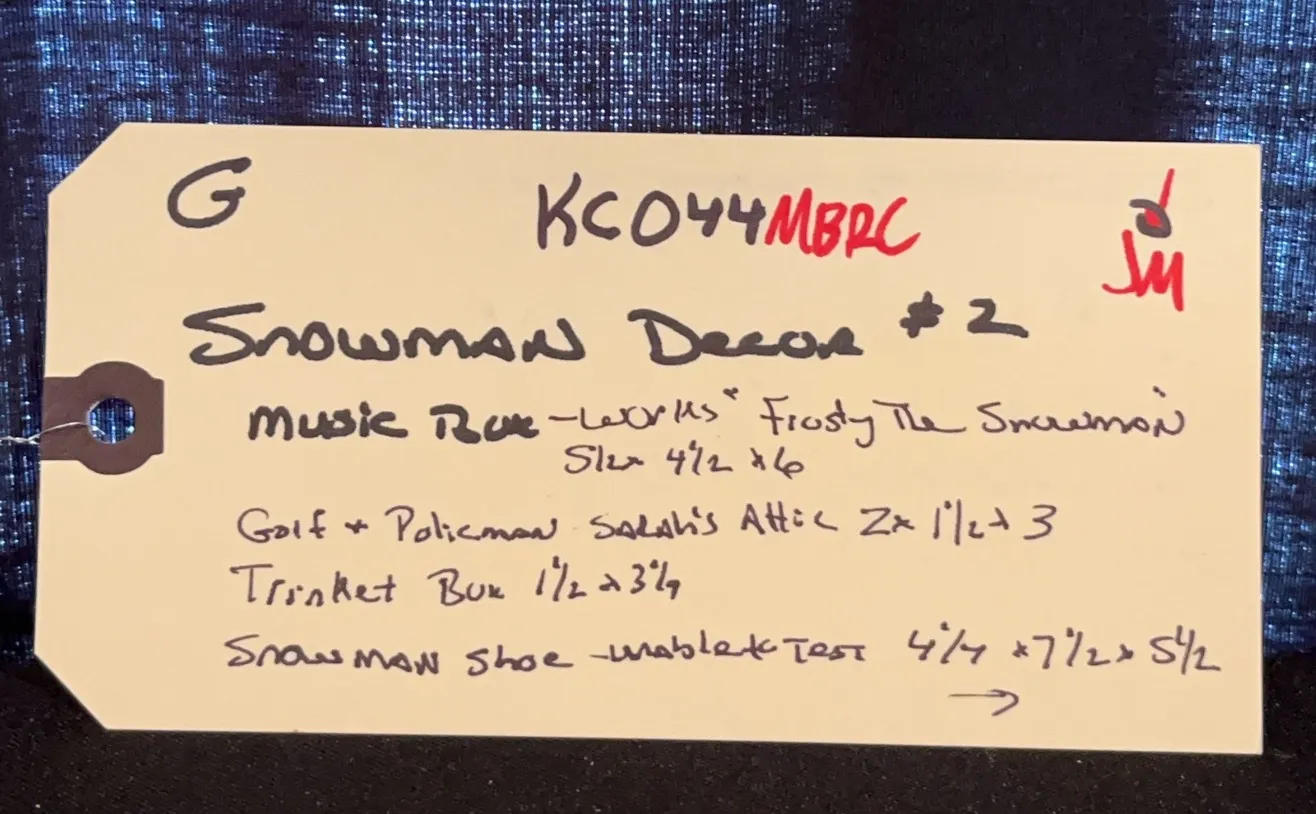 G KC044MBRC JM
Snowman Decor #2
Music Box - works "Frosty The Snowman"
5 1/2 x 4 1/2 x 6
Golf + Policman Sarah's Attic 2 x 1 1/2 x 3
Trinket Box 1 1/2 x 3 1/4
Snowman Shoe - unable to Test 4 1/4 x 7 1/2 x 5 1/2
→